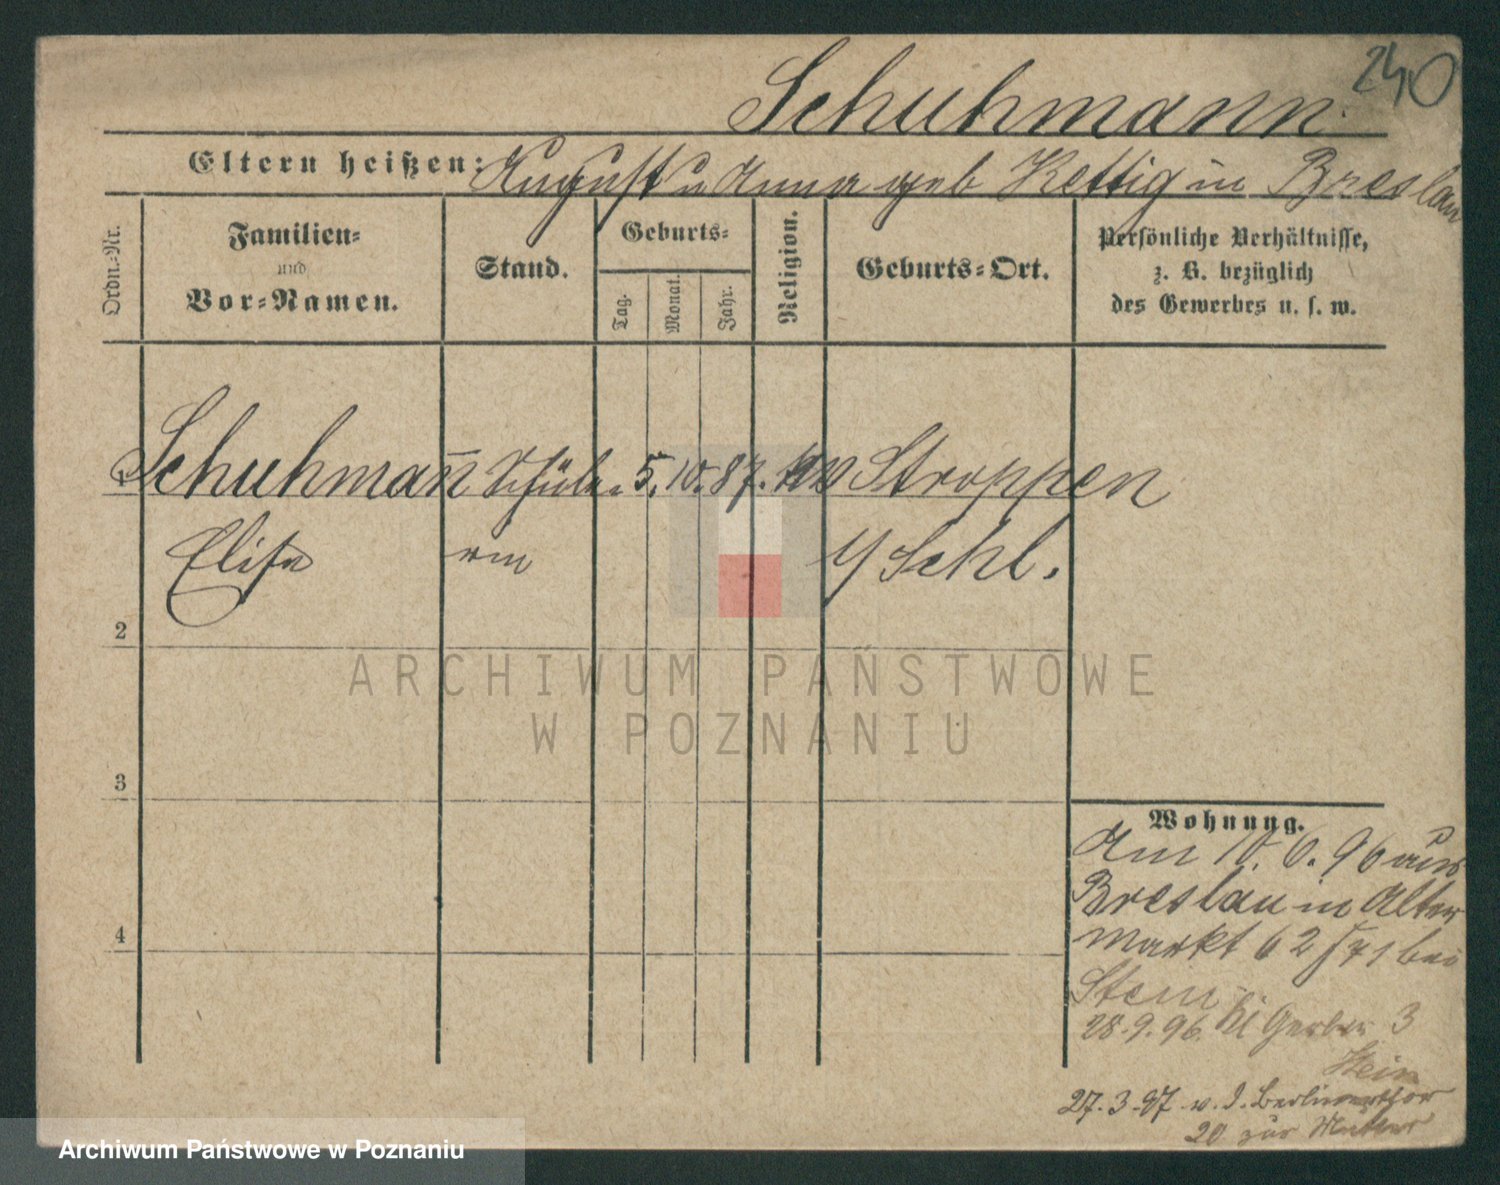 240
Schuhmann.
Eltern heißen: August u Anna geb Kettig in Breslau
Ordn.-Nr.
Familien-
und
Vor-Namen.
Stand.
Geburts-
Tag.
Monat.
Jahr.
Religion.
Geburts-Ort.
Persönliche Verhältnisse,
z. B. bezüglich
des Gewerbes u. s. w.
1 Schuhman̄ Schüle- 5. 10. 87. Stroppen
Elise rin Schl.
2
3
4
ARCHIWUM PAŃSTWOWE
W POZNANIU
Wohnung.
Am 10. 6. 96 aus
Breslau in Alter
Markt 62 bei
Stein
28.9.96. Kl Gerber 3
Stein
27.3.97 v. d. Berlinerthor
20 zur Mutter
Archiwum Państwowe w Poznaniu